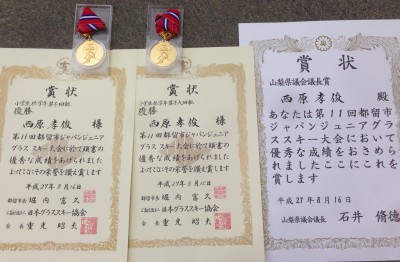 賞状
小学生低学年男子回転
優勝
西原孝俊 様
第11回都留市ジャパンジュニア
グラススキー大会に於て頭書の
優秀な成績をあげられました
よってここにその栄誉を讃え賞します
平成27年8月16日
都留市長 堀内富久
日本グラススキー協会
会長 重見昭夫
賞状
小学生低学年男子大回転
優勝
西原孝俊 様
第11回都留市ジャパンジュニア
グラススキー大会に於て頭書の
優秀な成績をあげられました
よってここにその栄誉を讃え賞します
平成27年8月16日
都留市長 堀内富久
日本グラススキー協会
会長 重見昭夫
賞状
山梨県議会議長賞
西原孝俊 殿
あなたは第11回都留市
ジャパンジュニアグラ
ススキー大会において
優秀な成績をおさめら
れましたここにこれを
賞します
平成27年8月16日
山梨県議会議長 石井脩德